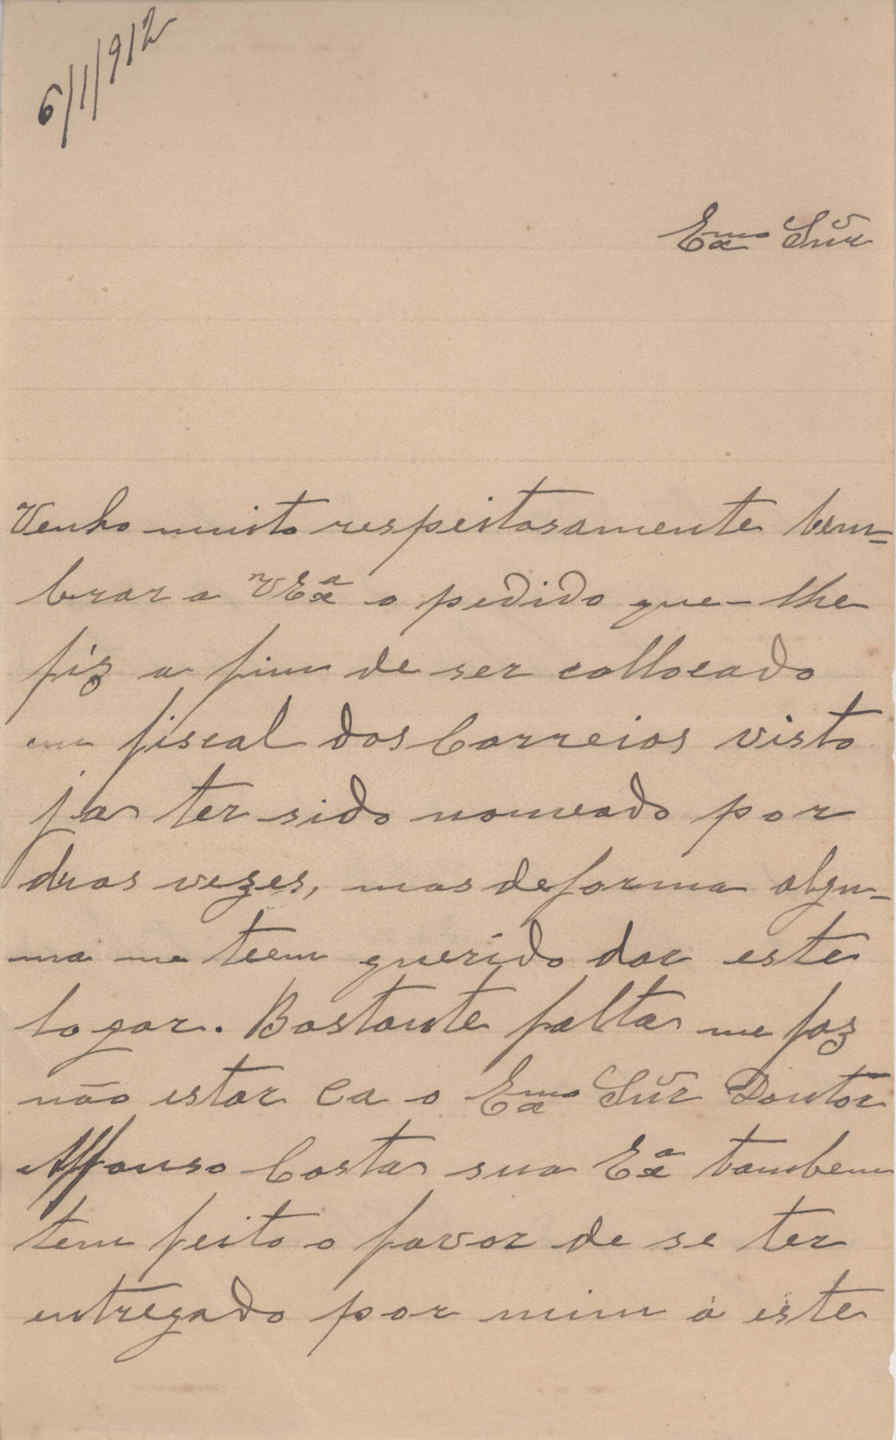 6/1/912
Exmo Snr
Venho muito respeitosamente lem=
brar a V Exa o pedido que-lhe
fiz a fim de ser collocado
em fiscal dos Correios visto
ja ter sido nomeado por
duas vezes, mas de forma algu=
ma me teem querido dar este
logar. Bastante falta me faz
não estar ca o Exmo Snr Doutor
Affonso Costa sua Exa tambem
tem feito o favor de se ter
entregado por mim a este